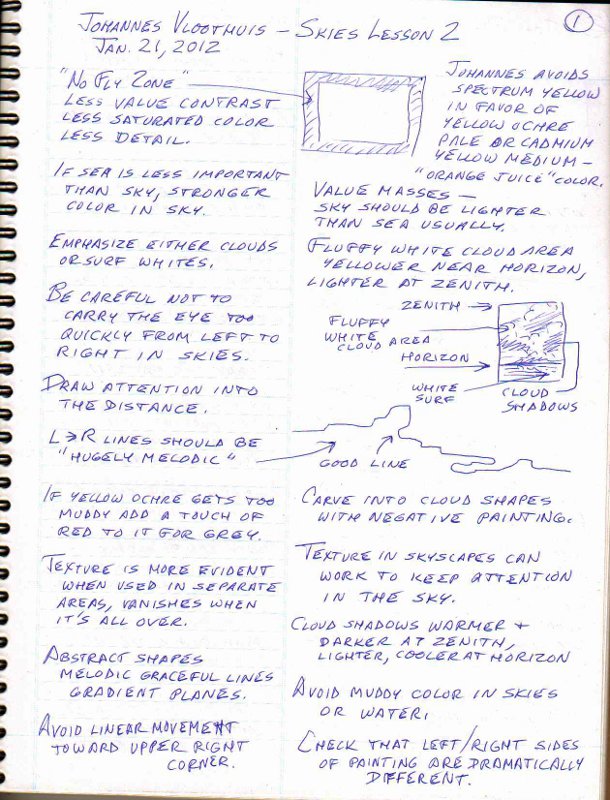 JOHANNES VLOOTHUIS – SKIES LESSON 2
JAN. 21, 2012
1
"NO FLY ZONE"
LESS VALUE CONTRAST
LESS SATURATED COLOR
LESS DETAIL.
IF SEA IS LESS IMPORTANT
THAN SKY, STRONGER
COLOR IN SKY.
EMPHASIZE EITHER CLOUDS
OR SURF WHITES.
BE CAREFUL NOT TO
CARRY THE EYE TOO
QUICKLY FROM LEFT TO
RIGHT IN SKIES.
DRAW ATTENTION INTO
THE DISTANCE.
L→R LINES SHOULD BE
"HUGELY MELODIC"
IF YELLOW OCHRE GETS TOO
MUDDY ADD A TOUCH OF
RED TO IT FOR GREY.
TEXTURE IS MORE EVIDENT
WHEN USED IN SEPARATE
AREAS, VANISHES WHEN
IT'S ALL OVER.
ABSTRACT SHAPES
MELODIC GRACEFUL LINES
GRADIENT PLANES.
AVOID LINEAR MOVEMENT
TOWARD UPPER RIGHT
CORNER.
JOHANNES AVOIDS
SPECTRUM YELLOW
IN FAVOR OF
YELLOW OCHRE
PALE OR CADMIUM
YELLOW MEDIUM –
"ORANGE JUICE" COLOR.
VALUE MASSES –
SKY SHOULD BE LIGHTER
THAN SEA USUALLY.
FLUFFY WHITE CLOUD AREA
YELLOWER NEAR HORIZON,
LIGHTER AT ZENITH.
ZENITH
FLUFFY
WHITE
CLOUD AREA
HORIZON
WHITE
SURF
CLOUD
SHADOWS
GOOD LINE
CARVE INTO CLOUD SHAPES
WITH NEGATIVE PAINTING.
TEXTURE IN SKYSCAPES CAN
WORK TO KEEP ATTENTION
IN THE SKY.
CLOUD SHADOWS WARMER +
DARKER AT ZENITH,
LIGHTER, COOLER AT HORIZON
AVOID MUDDY COLOR IN SKIES
OR WATER.
CHECK THAT LEFT/RIGHT SIDES
OF PAINTING ARE DRAMATICALLY
DIFFERENT.